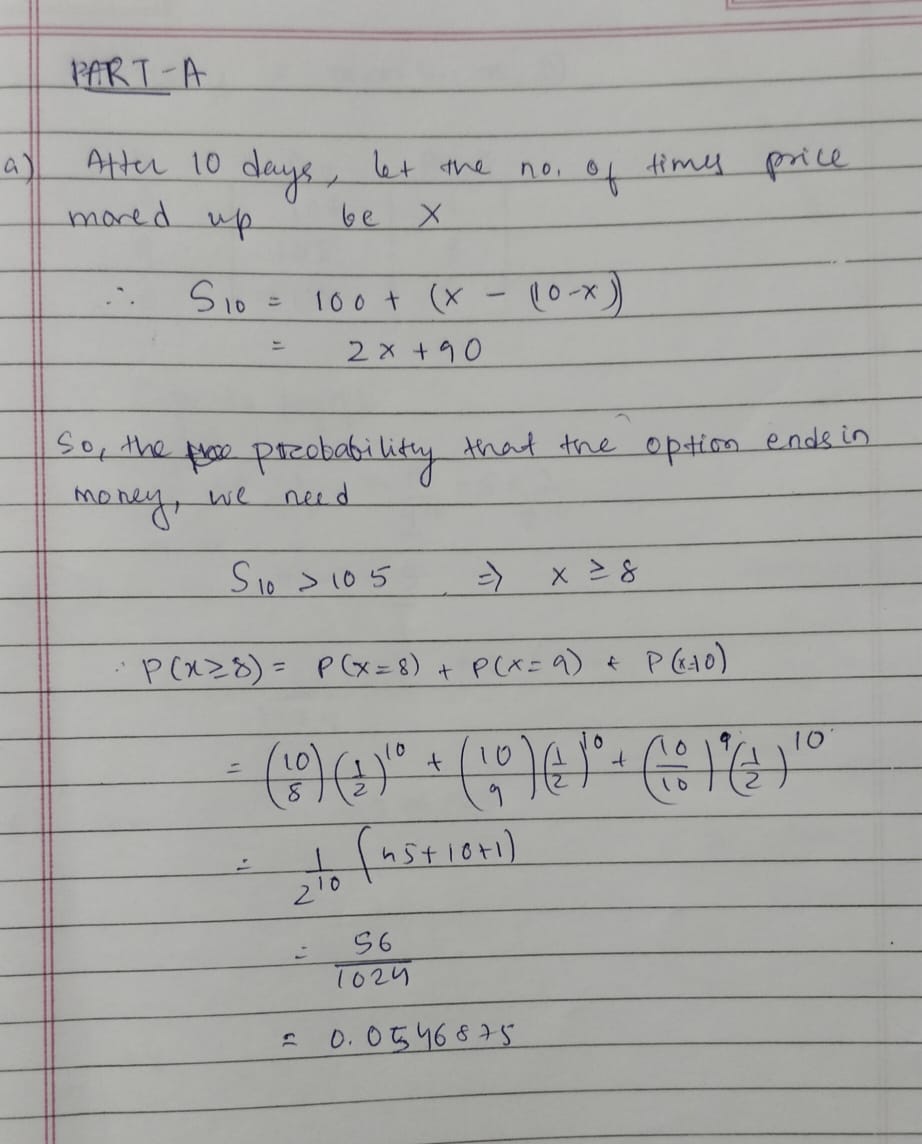 PART-A
a) After 10 days, let the no. of times price
moved up be X
∴ S₁₀ = 100 + (X - (10-x))
= 2x + 90
So, the probability that the option ends in
money, we need
S₁₀ > 105 ⇒ x ≥ 8
∴ P(x≥8) = P(x=8) + P(x=9) + P(x=10)
= (10 8)(1/2)¹⁰ + (10 9)(1/2)¹⁰ + (10/10)⁹(1/2)¹⁰
= 1/2¹⁰ (45+10+1)
= 56/1024
= 0.0546875